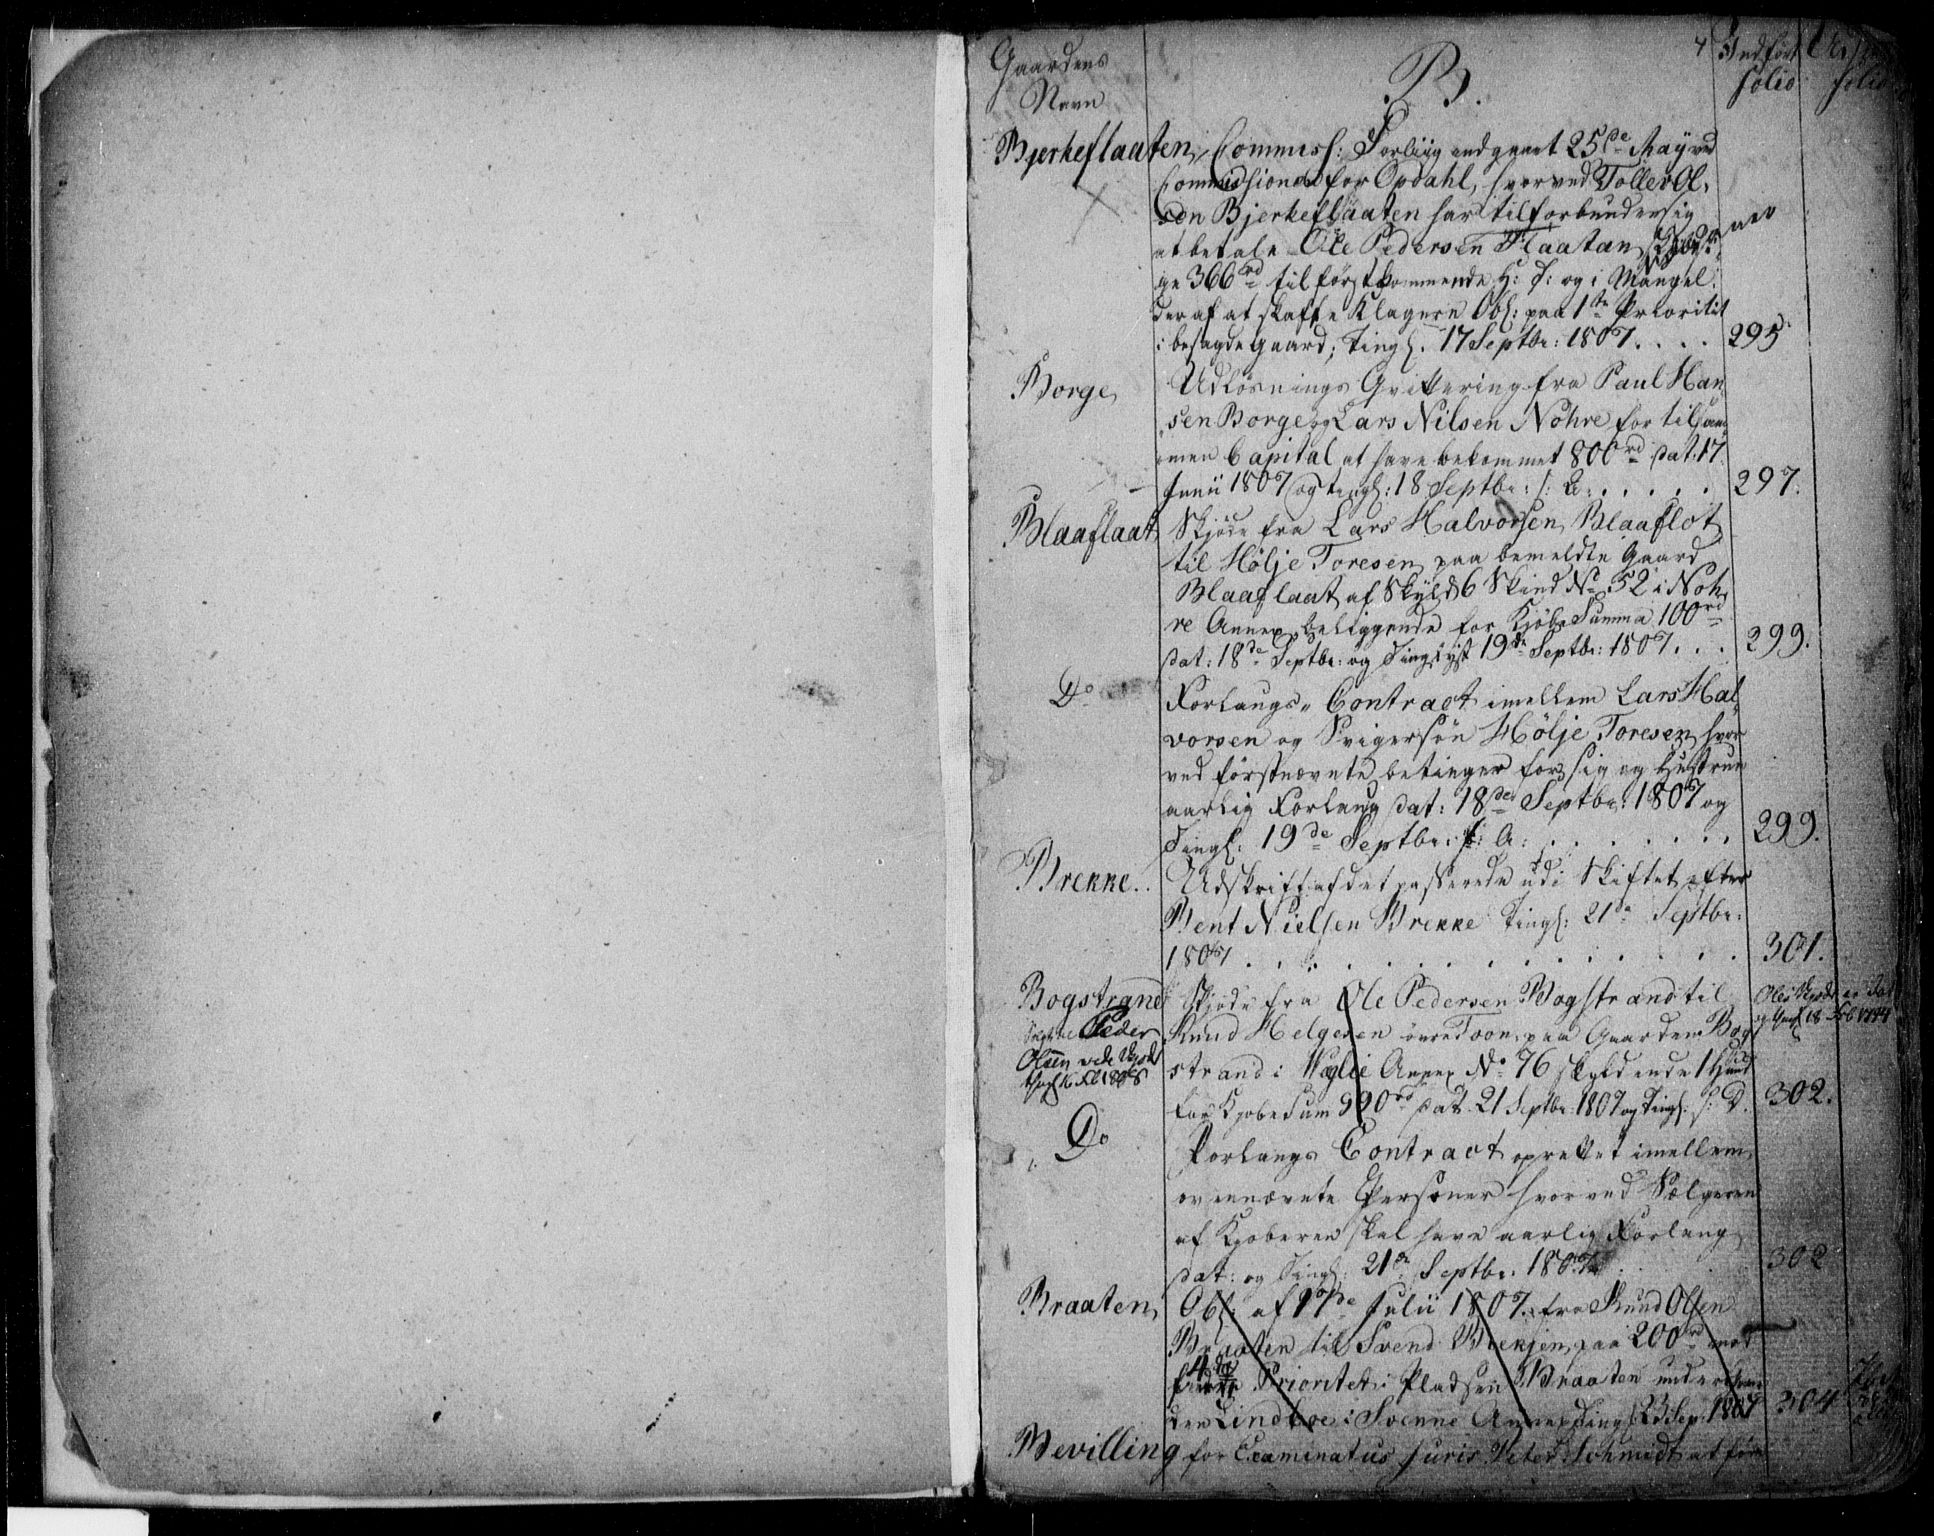 Gaardens
Navn
B.
4
Indført
folio
folio
Bjerkeflaaten, Commiss: Forliig indgaaet 25de May ved
Commissionen for Opdahl, hvorved Tollev Ol-
sen Bjerkeflaaten har tilforbunden sig
at betale Ole Pedersen Flaatan
ge 366rd til førstkommende og i Mangel
deraf at skaffe Klageren Obl: paa 1te Prioritet
i besagde Gaard; Tingl. 17 Septbr: 1807 . . . . 295
Borge, Udløsnings Qvittering fra Paul Han-
sen Borge og Lars Nilsen Nohre for tilsam-
men Capital at have bekommet 800rd dat. 17
Junii 1807 og tingl: 18 Septbr: s: A: . . . . . 297.
Blaaflaat, Skjøde fra Lars Halvorsen Blaaflot
til Hölje Toresen paa bemeldte Gaard
Blaaflaat af Skyld 6 Skind No 52 i Noh-
re Annex beliggende for Kjøbe Summa 100rd
dat: 18de Septbr: og Tinglyst 19de Septbr: 1807 . . . 299.
Do Forlaugs-Contract imellem Lars Hal-
vorsen og Svigersön Hölje Toresen, hvor-
ved förstnævnte betinger for sig og Hustrue
aarlig Forlaug dat: 18de Septbr: 1807 og
Tingl: 19de Septbr: s: A: . . . . . . . 299.
Brekke. Udskrift af det passerede udi Skiftet efter
Bent Nielsen Brekke Tingl: 21de Septbr:
1807 . . . . . . . . . . . . 301.
Bogstrand Skjøde fra Ole Pedersen Bogstrand til
Knud Helgesen övre Toen paa Gaarden Bog-
strand i Annex No 76 skyldende 1 Hud
for Kjøbesum 990rd dat. 21 Septbr: 1807 og Tingl: s: D. 302.
Peder
Olsen vide Skjøde
Oles Skjøde er
18 Feb
Do Forlaugs Contract oprettet imellem
ovennævnte Personer hvorved Sælgeren
af Kjøberen skal have aarlig Forlaug
dat: og Tingl: 21de Septbr: 1807 302
Braaten, Obl: af 17de Julii 1807 fra Knud Olsen
Braaten til Svend paa 200rd mod
Prioritet i Pladsen Braaten under
den Lindboe i Svenne Annex Tingl: 23 Sep. 1807 304
Bevilling for Examinatus Juris Peter Schmidt at føre